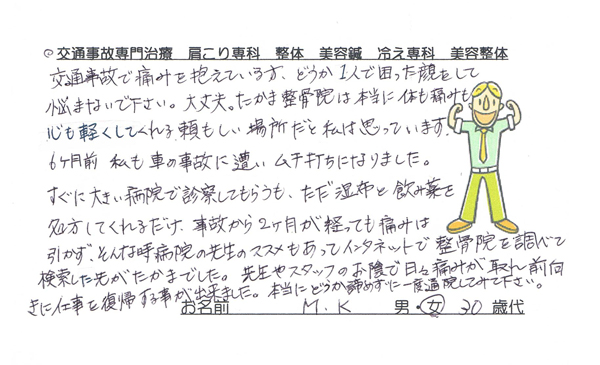 ◎交通事故専門治療 肩こり専科 整体 美容鍼 冷え専科 美容整体
交通事故で痛みを抱えている方、どうか1人で困った顔をして
悩まないで下さい。大丈夫。たかま整骨院は本当に体も痛みも
心も軽くしてくれる、頼もしい場所だと私は思っています。
6ヶ月前 私も車の事故に遭い ムチ打ちになりました。
すぐに大きい病院で診察してもらうも、ただ湿布と飲み薬を
処方してくれるだけ、事故から2ヶ月が経っても痛みは
引かず、そんな時病院の先生のススメもあってインタネットで整骨院を調べて
検索した先がたかまでした。先生やスタッフのお陰で日々痛みが取れ前向
きに仕事を復帰する事が出来ました。本当にどうか諦めずに一度通院してみて下さい。
お名前 M.K 男・女 30歳代